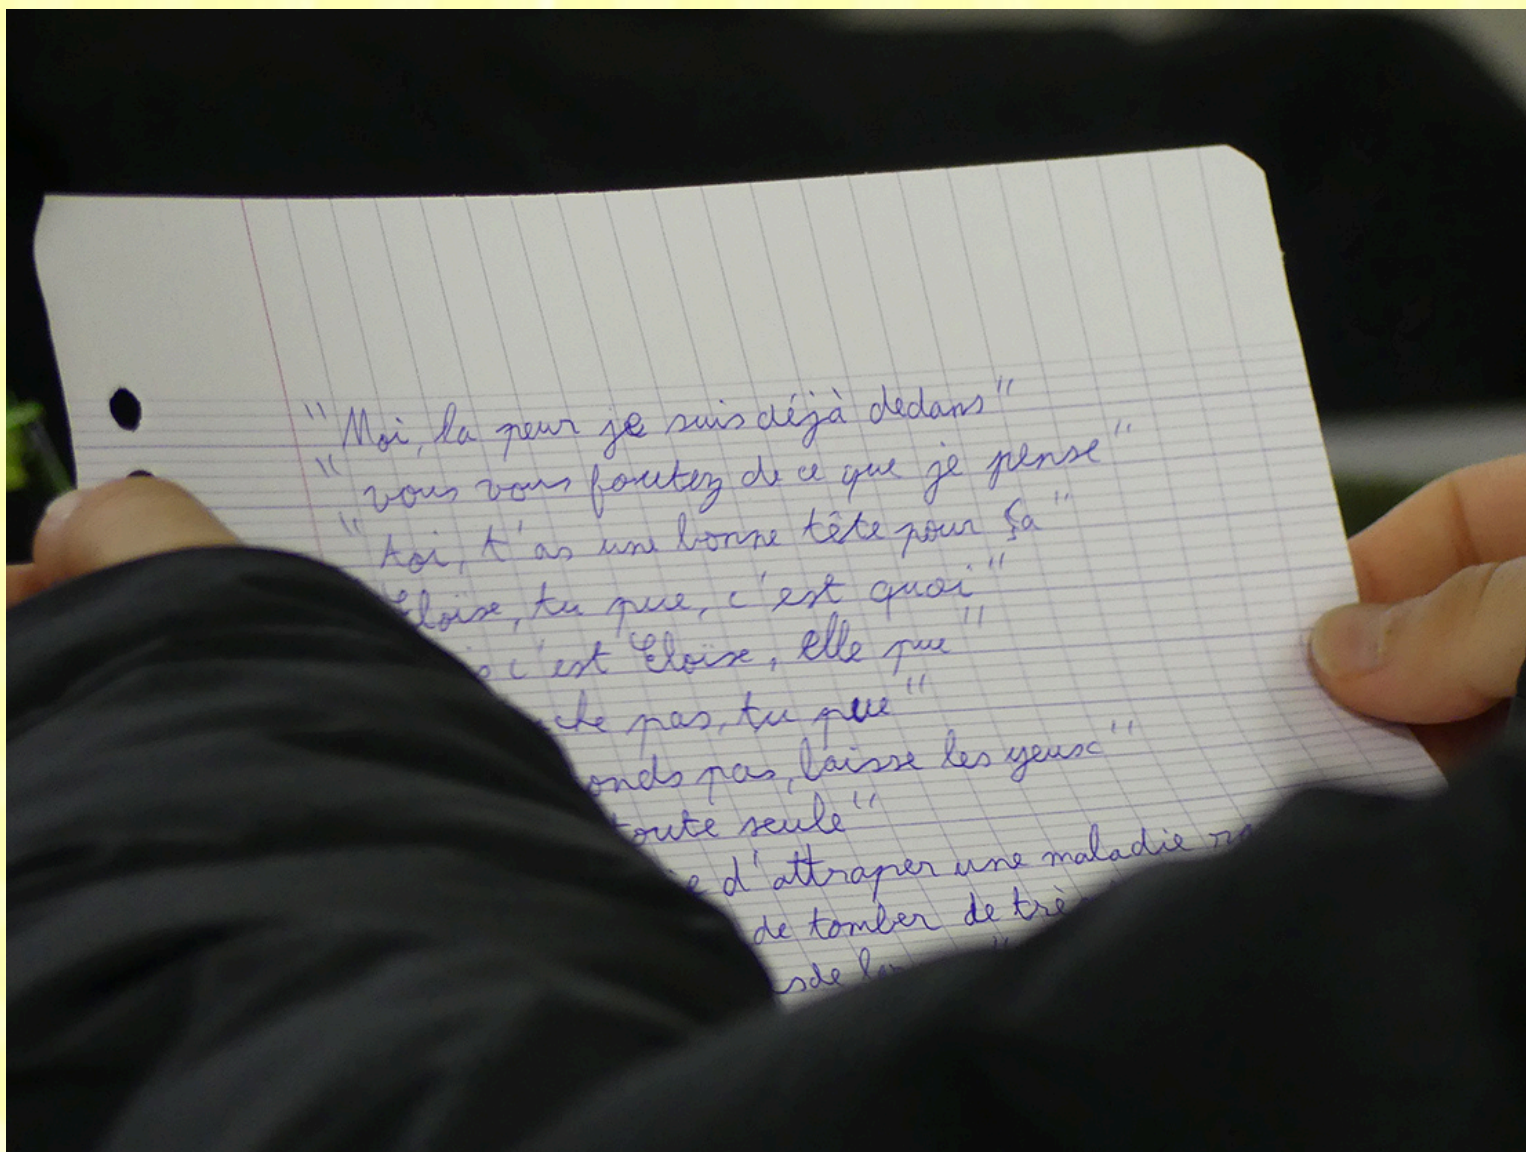 "Moi, la peur je suis déjà dedans"
"vous vous foutez de ce que je pense"
"toi, t'as une bonne tête pour ça"
Eloïse, tu pue, c'est quoi"
c'est Eloïse, elle pue"
pas, tu pue"
pas, laisse les yeux"
toute seule"
d'attraper une maladie
de tomber de